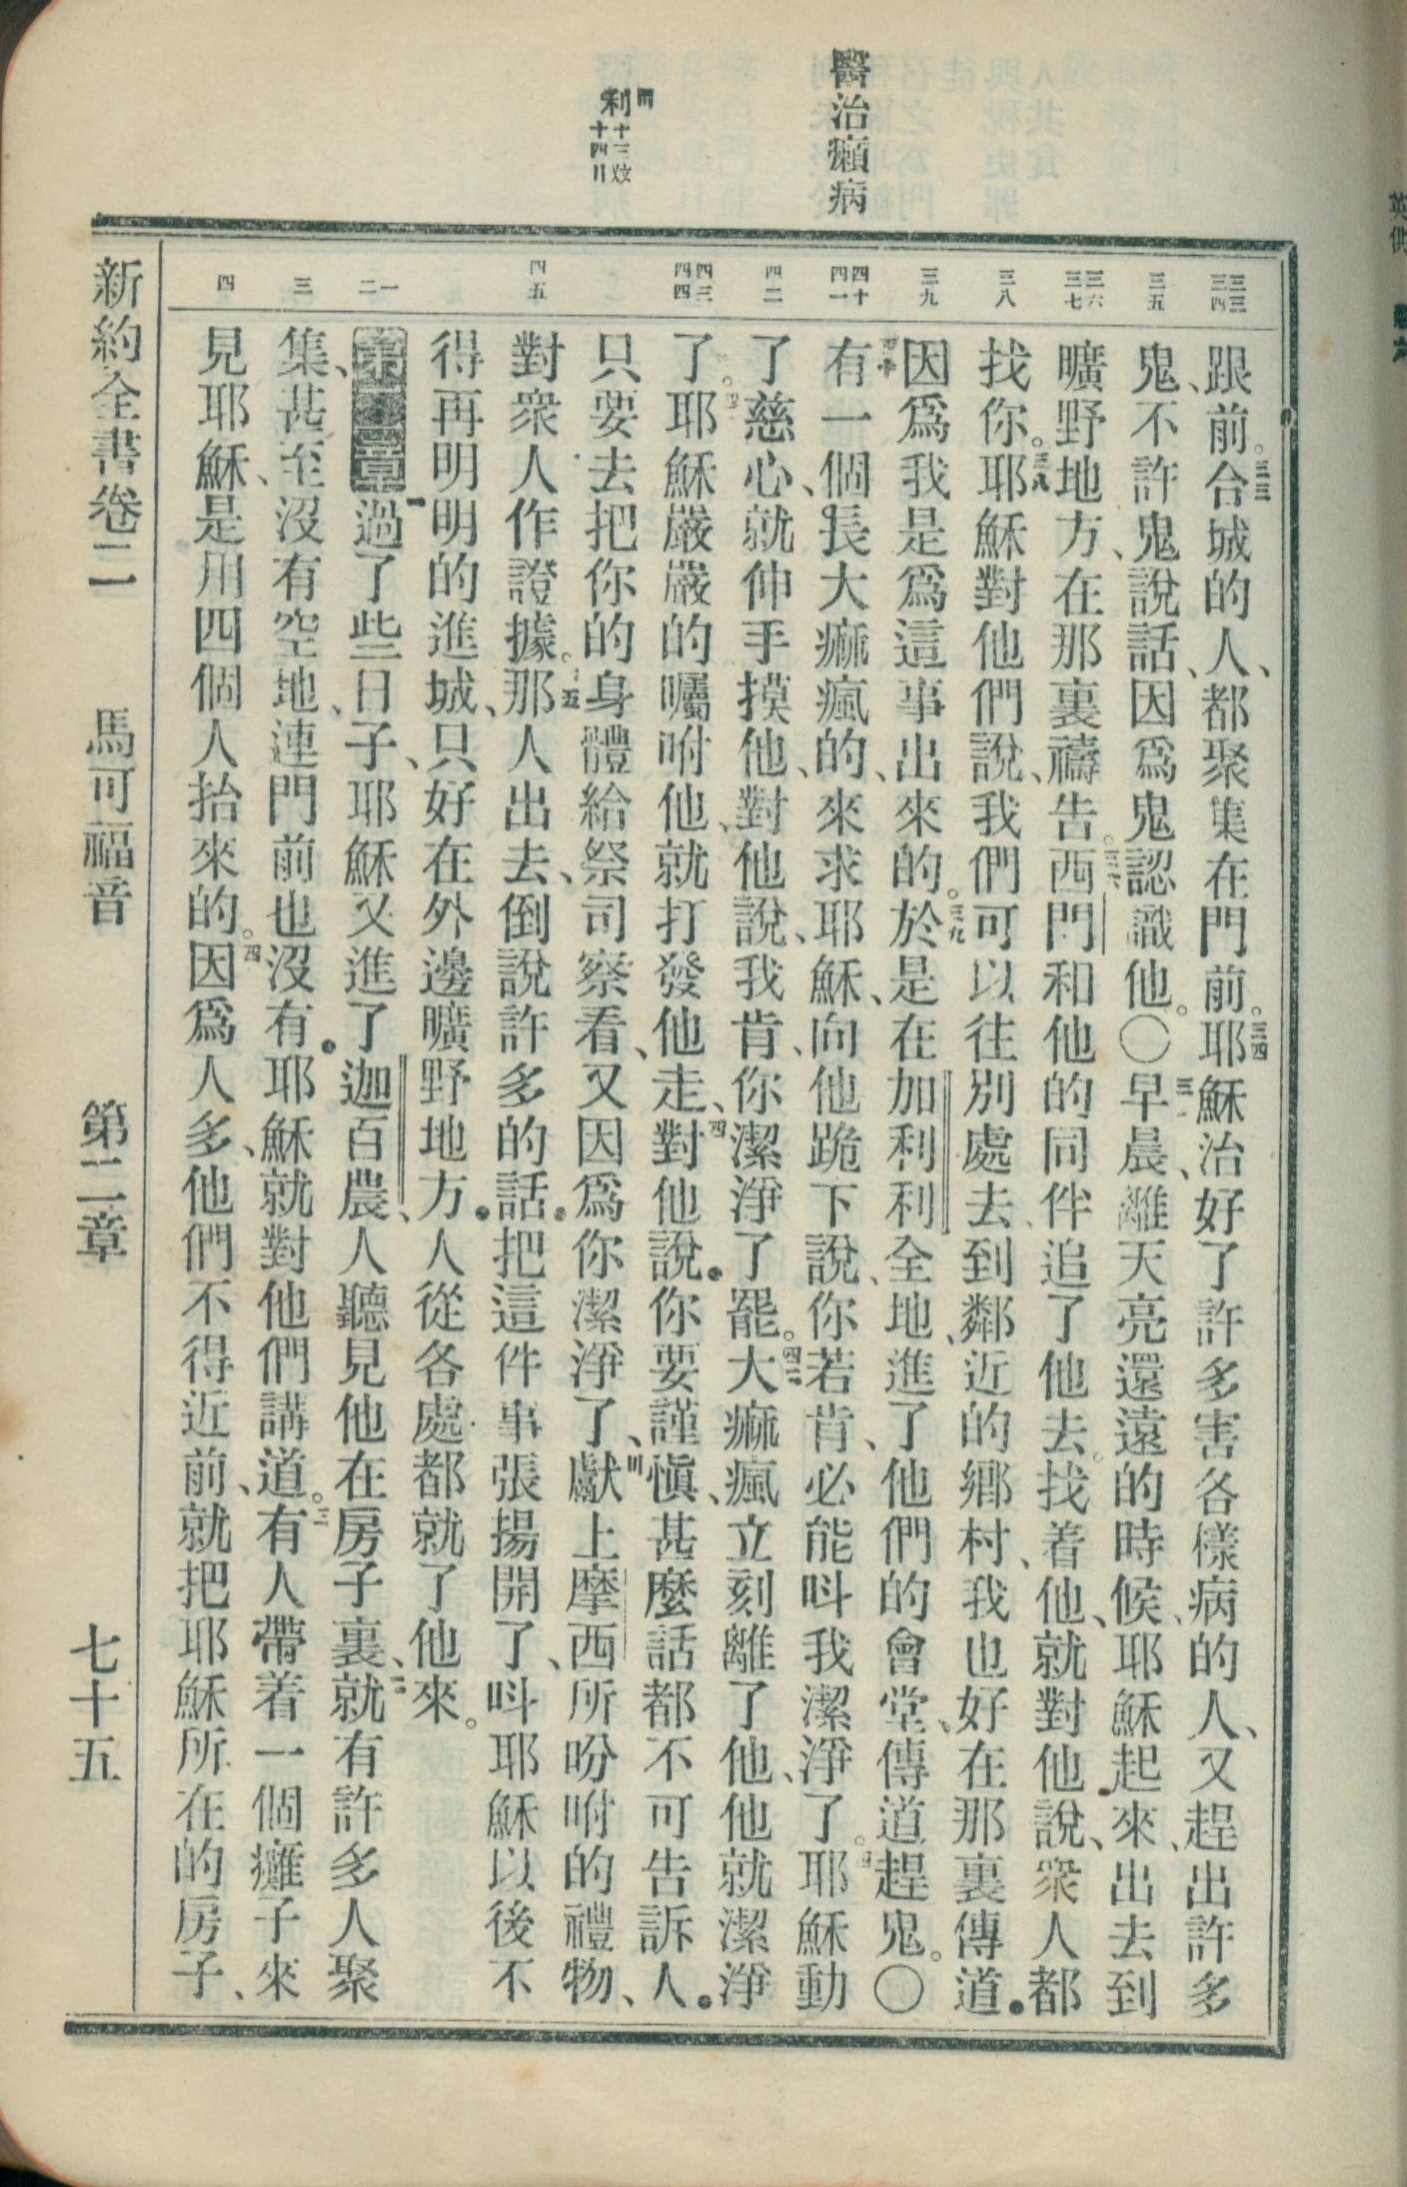 醫治癩病
利十三炆
十四川
三三 三四
三五
三六 三七
三八
三九
四十 四一
四二
四三 四四
四五
一 二
三
四
跟前。三三合城的人、都聚集在門前。三四耶穌治好了許多害各樣病的人、又趕出許多
鬼、不許鬼說話、因爲鬼認識他。〇早晨、離天亮還遠的時候、耶穌起來、出去到
曠野地方、在那裏禱告。三六西門和他的同伴追了他去。找着他、就對他說、衆人都
找你。三八耶穌對他們說、我們可以往別處去、到鄰近的鄉村、我也好在那裏傳道。
因爲我是爲這事出來的。三九於是在加利利全地、進了他們的會堂、傳道趕鬼。〇
四十有一個長大痲瘋的、來求耶穌、向他跪下說、你若肯、必能呌我潔淨了。耶穌動
了慈心、就伸手摸他、對他說、我肯、你潔淨了罷。四二大痲瘋立刻離了他、他就潔淨
了。耶穌嚴嚴的囑咐他、就打發他走、對他說。你要謹愼、甚麼話都不可告訴人。
只要去把你的身體給祭司察看、又因爲你潔淨了、獻上摩西所吩咐的禮物、
對衆人作證據。那人出去、倒說許多的話。把這件事張揚開了、呌耶穌以後不
得再明明的進城、只好在外邊曠野地方。人從各處都就了他來。
第二章一過了些日子、耶穌又進了迦百農、人聽見他在房子裏、二就有許多人聚
集、甚至沒有空地、連門前也沒有。耶穌就對他們講道。三有人帶着一個癱子來
見耶穌、是用四個人抬來的。四因爲人多、他們不得近前、就把耶穌所在的房子、
新約全書卷二 馬可福音 第二章 七十五